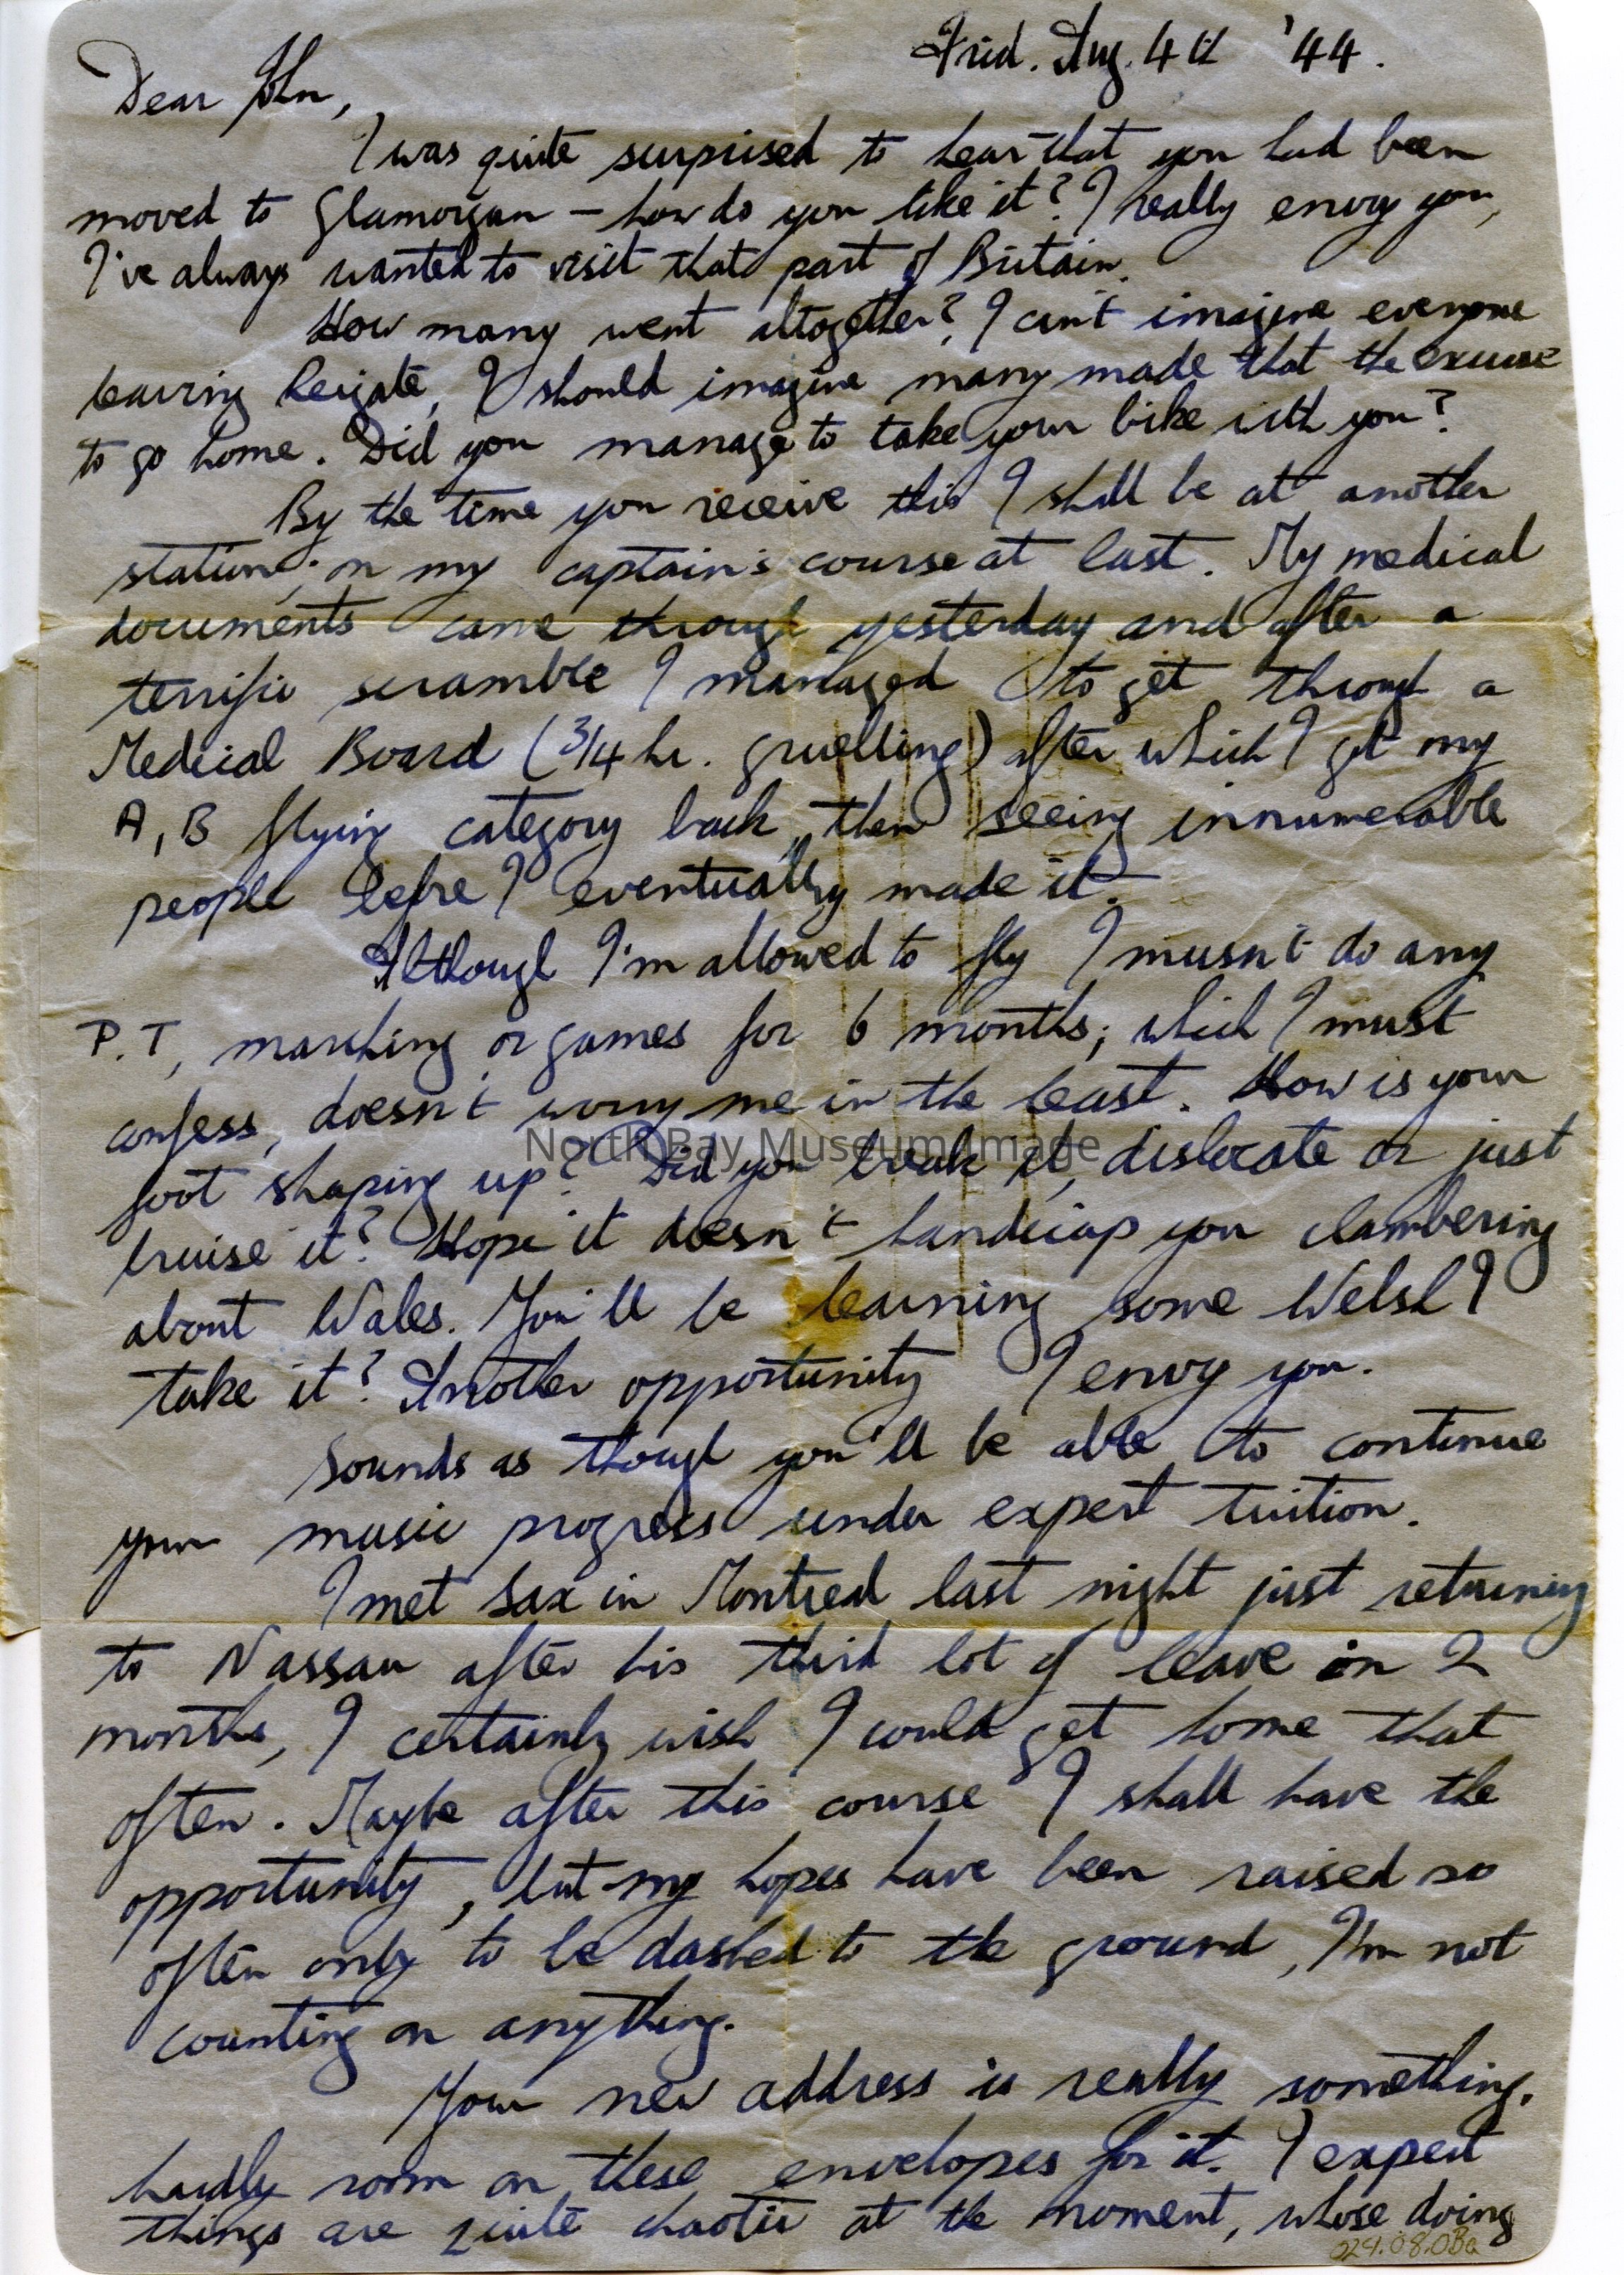 Frid. Aug. 4th '44.
Dear John,
I was quite surprised to hear that you had been
moved to Glamorgan – how do you like it? I really envy you,
I've always wanted to visit that part of Britain.
How many went altogether? I can't imagine everyone
leaving Reigate, I should imagine many made that the excuse
to go home. Did you manage to take your bike with you?
By the time you receive this I shall be at another
station; on my captain's course at last. My medical
documents came through yesterday and after a
terrific scramble I managed to get through a
Medical Board (3/4 hr. gruelling) after which I got my
A, B flying category back, then seeing innumerable
people before I eventually made it.
Although I'm allowed to fly I musn't do any
P.T, marching or games for 6 months; which I must
confess, doesn't worry me in the least. How is your
North Bay Museum Image
foot shaping up? Did you break it, dislocate or just
bruise it? Hope it doesn't handicap you clambering
about Wales. You'll be learning some Welsh I
take it? Another opportunity I envy you.
Sounds as though you'll be able to continue
your music progress under expert tuition.
I met Sax in Montreal last night just returning
to Nassau after his third lot of leave in 2
months, I certainly wish I could get home that
often. Maybe after this course I shall have the
opportunity, but my hopes have been raised so
often only to be dashed to the ground, I'm not
counting on anything.
Your new address is really something,
hardly room on these envelopes for it. I expect
things are quite chaotic at the moment, whose doing
024.08.0Ba